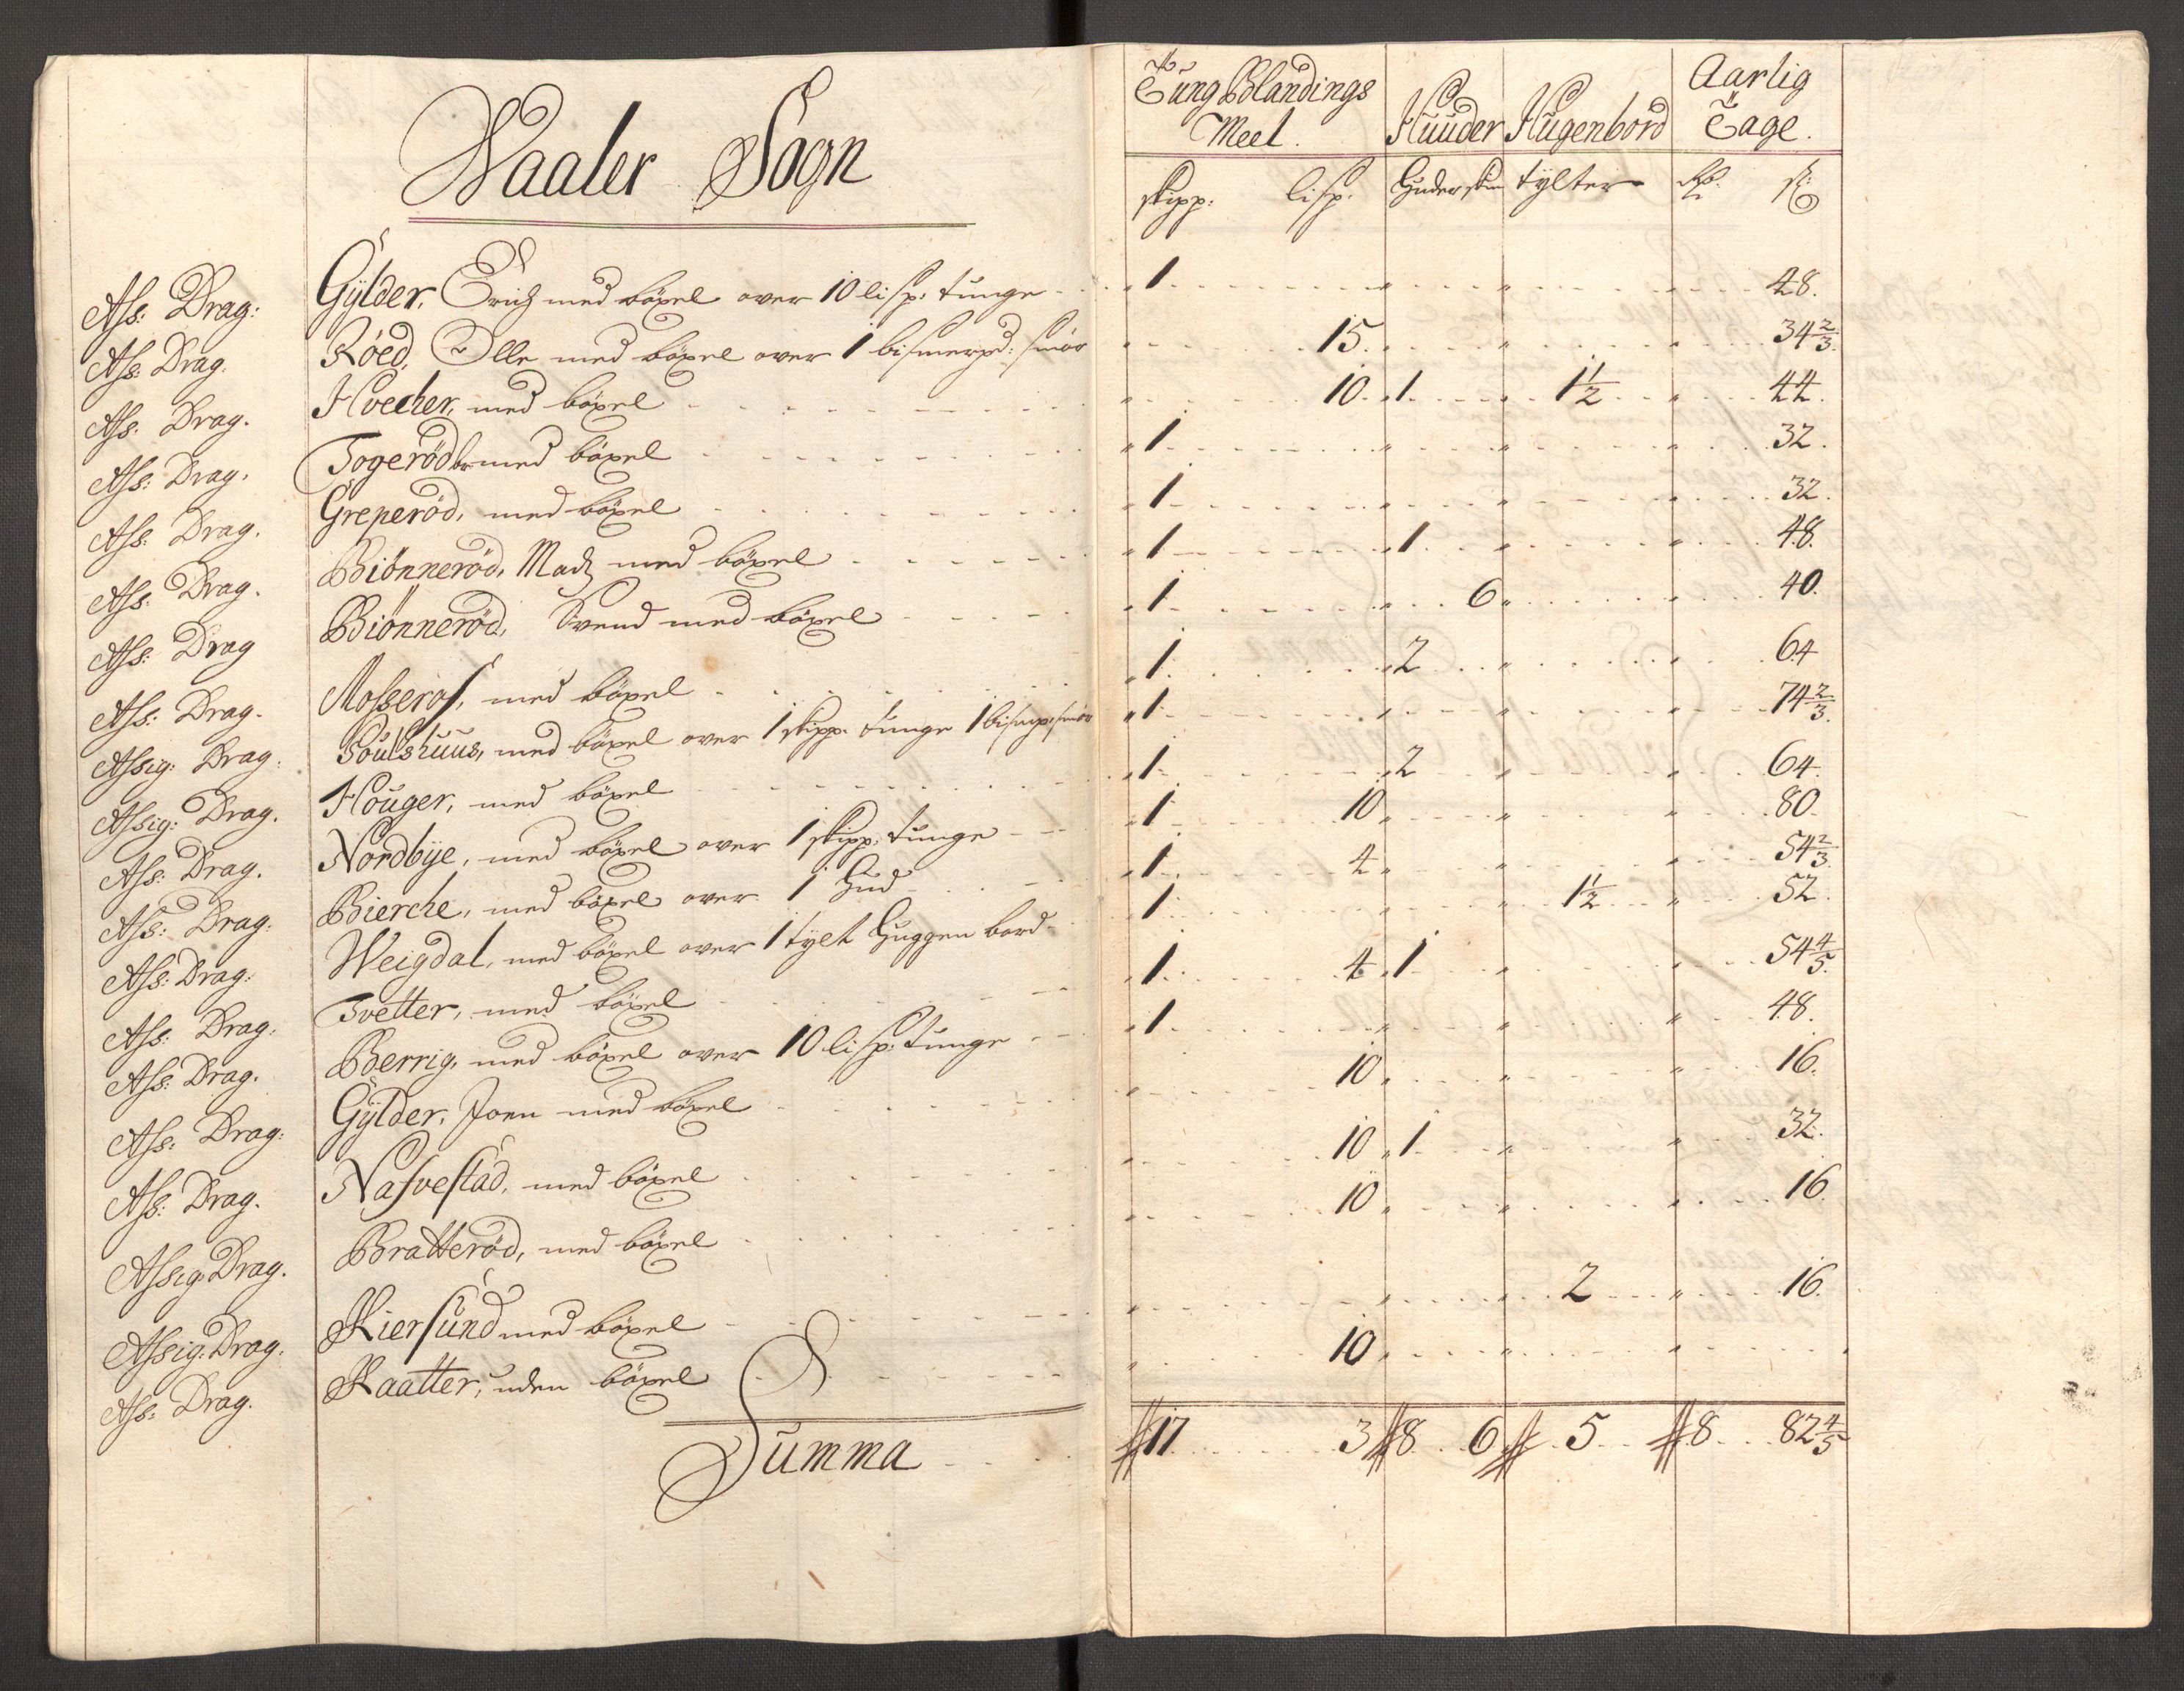 Waaler Sogn
Tung Blandings Meel. Huuder Hugenbord Aarlig Tage.
skipp: lisp: Huder skin tylter Rd. s:
Ass: Drag: Gylder, Erich med böxel over 10 lisp: tunge 1 48.
Ass: Drag. Röed, Olle med böxel over 1 bismerpd: smör 15. 34 2/3.
Ass: Drag. Hvecher, med böxel 10. 1 1 1/2 44.
Ass: Drag. Togeröd med böxel 1 32.
Ass: Drag. Greperöd, med böxel 1 32.
Ass: Drag. Biönneröd, Madz med böxel 1 1 48.
Ass: Drag Biönneröd, Svend med böxel 1 6 40.
Ass: Drag. Mosseros, med böxel 1 2 64
Assig: Drag. Poulshuus, med böxel over 1 skipp. tunge 1 bismp: smör 1 74 2/3.
Assig: Drag. Houger, med böxel 1 2 64.
Ass: Drag. Nordbye, med böxel over 1 skipp: tunge 1 10 80.
Ass: Drag: Bierche, med böxel over 1 Hud 1 4 54 2/3.
Ass: Drag: Weigdal, med böxel over 1 tylt Huggen bord 1 1 1/2 52.
Ass: Drag: Tvetter, med böxel 1 4 1 54 4/5.
Ass: Drag. Berrig, med böxel over 10 lisp: tunge 1 48.
Ass: Drag: Gylder, Joen med böxel 10 16.
Ass: Drag. Nasvestad, med böxel 10 1 32.
Assig: Drag. Bratteröd, med böxel 10 16.
Assig: Drag. Kiersund med böxel 2 16.
Ass: Drag. Kaatter, uden böxel 10
Summa 17 3 8 6 5 8 82 4/5